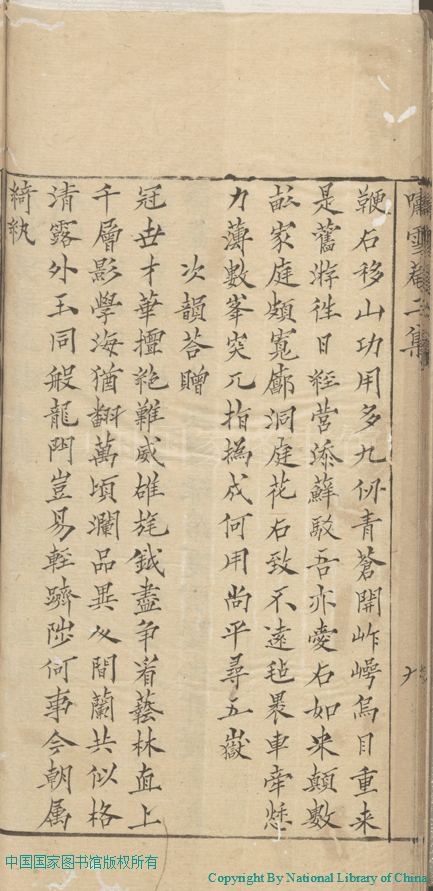 嘯雪菴二集
鞭石移山功用多九仞青蒼開岝㟧烏目重来
是舊游徃日經營添蘚駁吾亦愛石如米顛數
畝家庭頗寬廊洞庭花石致不遠毡裹車牽愁
力薄數峯突兀指撝成何用尚平尋五嶽
次韻荅贈
冠世才華擅絶難威雄旄鉞盡争看藝林直上
千層影學海猶翻萬頃瀾品異人間蘭共似格
清露外玉同般龍門豈易輕躋陟何事今朝属
綺紈
中国国家图书馆版权所有
Copyright By National Library of China